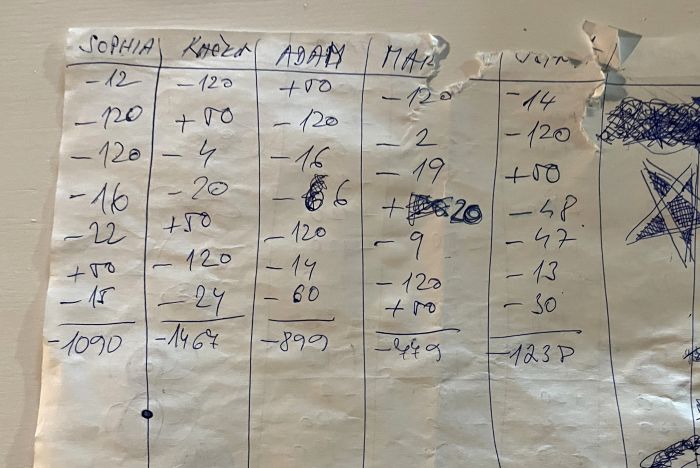 SOPHIA ADAM MAR
-12 -120 +50 -120 -14
-120 +50 -120 -2 -120
-120 -4 -16 -19 +50
-16 -20 -6 +20 -48
-22 +50 -120 -9 -47
+50 -120 -14 -120 -13
-15 -24 -60 +50 -30
-1090 -1467 -899 -779 -1238